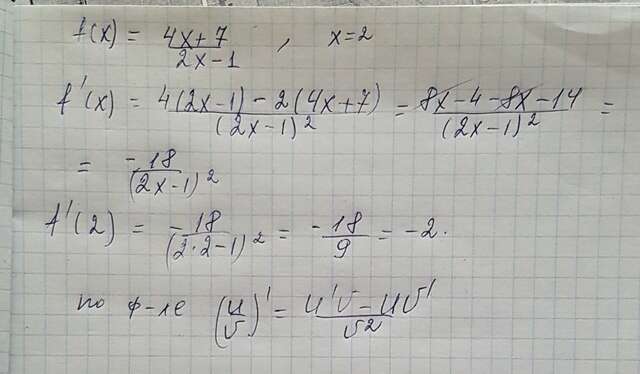 f(x) = (4x+7)/(2x-1) , x=2
f'(x) = (4(2x-1) - 2(4x+7))/(2x-1)² = (8x-4-8x-14)/(2x-1)² =
= -18/(2x-1)²
f'(2) = -18/(2·2-1)² = -18/9 = -2.
по ф-ле (u/v)' = (u'v - uv')/v²